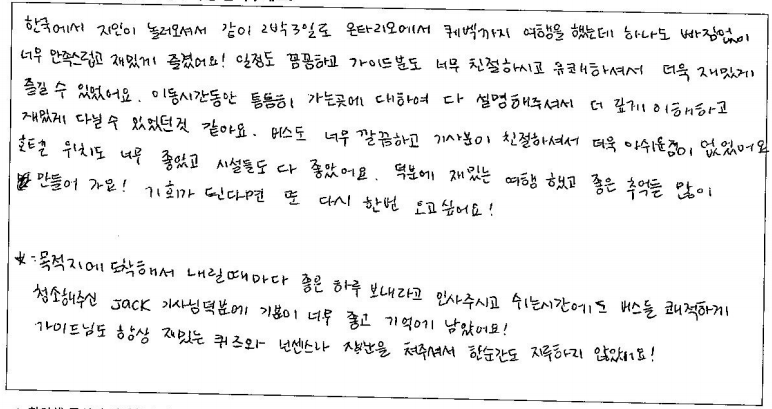 한국에서 지인이 놀러오셔서 같이 2박3일로 온타리오에서 퀘벡까지 여행을 했는데 하나도 빠짐없이
너무 만족스럽고 재밌게 즐겼어요! 일정도 꼼꼼하고 가이드분도 너무 친절하시고 유쾌하셔서 더욱 재밌게
즐길 수 있었어요. 이동시간동안 틈틈히 가는곳에 대하여 다 설명해주셔서 더 깊게 이해하고
재밌게 다닐 수 있었던것 같아요. 버스도 너무 깔끔하고 기사분이 친절하셔서 더욱 아쉬운점이 없었어요
호텔 위치도 너무 좋았고 시설들도 다 좋았어요. 덕분에 재밌는 여행 했고 좋은 추억들 많이
만들어 가요! 기회가 된다면 또 다시 한번 오고싶어요!
*: 목적지에 도착해서 내릴때마다 좋은 하루 보내라고 인사주시고 쉬는시간에도 버스를 쾌적하게
청소해주신 JACK 기사님덕분에 기분이 너무 좋고 기억에 남았어요!
가이드님도 항상 재밌는 퀴즈와 넌센스나 장난을 쳐주셔서 한순간도 지루하지 않았어요!